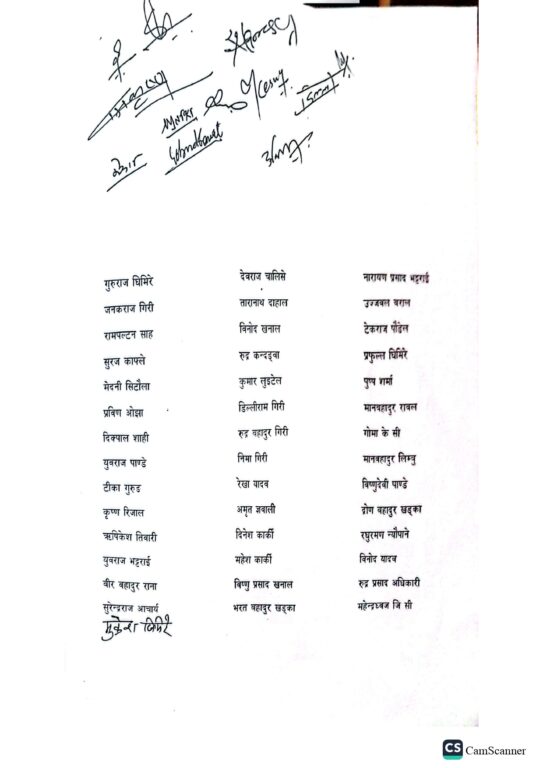 गुरुराज घिमिरे देवराज चालिसे नारायण प्रसाद भट्टराई
जनकराज गिरी तारानाथ दाहाल उज्जवल बराल
रामपल्टन साह विनोद खनाल टेकराज पौडेल
सुरज काफ्ले रुद्र कन्दङवा प्रफुल्ल घिमिरे
मेदनी सिटौला कुमार लुइटेल पुष्प शर्मा
प्रविण ओझा डिल्लीराम गिरी मानबहादुर रावल
दिक्पाल शाही रुद्र बहादुर गिरी गोमा के सी
युवराज पाण्डे निमा गिरी मानबहादुर लिम्बु
टीका गुरुङ रेखा यादव विष्णुदेवी पाण्डे
कृष्ण रिजाल अमृत ज्ञवाली द्रोण बहादुर खड्का
ऋषिकेश तिवारी दिनेश कार्की रघुरमण न्यौपाने
युवराज भट्टराई महेश कार्की विनोद यादव
वीर बहादुर राना विष्णु प्रसाद खनाल रुद्र प्रसाद अधिकारी
सुरेन्द्रराज आचार्य भरत बहादुर खड्का महेन्द्रध्वज जि सी
CS CamScanner